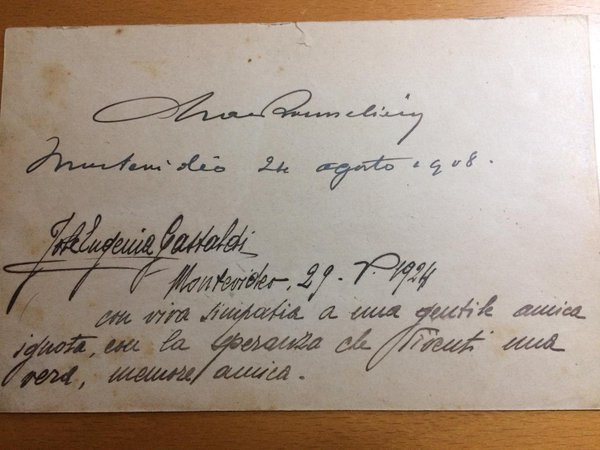 Montevideo 24 agosto 1908.
Gastaldi
Montevideo, 29 - V - 1924
con viva simpatia a una gentile amica
ignota, con la speranza che diventi una
vera, memore amica.